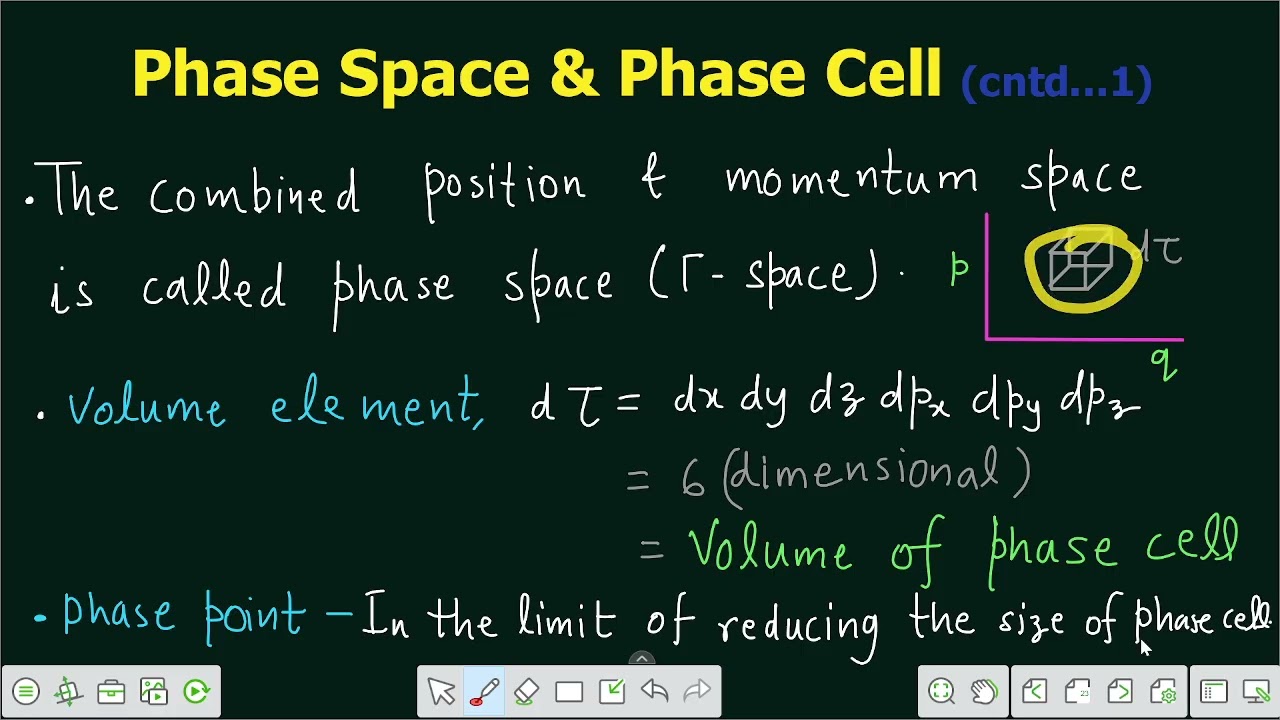 Phase Space & Phase Cell (cntd...1)
. The combined position & momentum space
is called phase space (Γ - space) .
p
dτ
q
. Volume element, dτ = dx dy dz dpx dpy dpz
= 6 (dimensional)
= Volume of phase cell
. Phase point – In the limit of reducing the size of phase cell
23